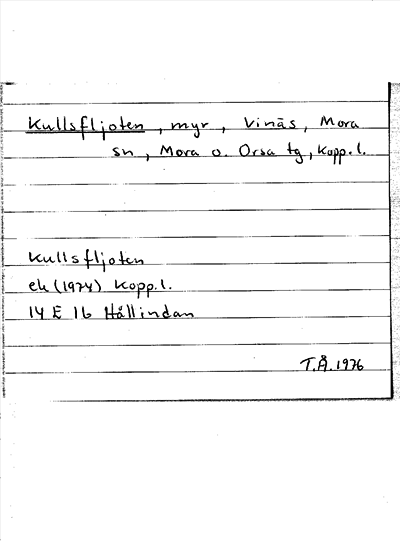 Kullsfljoten, myr, Vinäs, Mora
sn, Mora o. Orsa tg, Kopp.l.
Kullsfljoten
ek (1974) Kopp.l.
14 E 1b Hållindan
T.Å. 1976